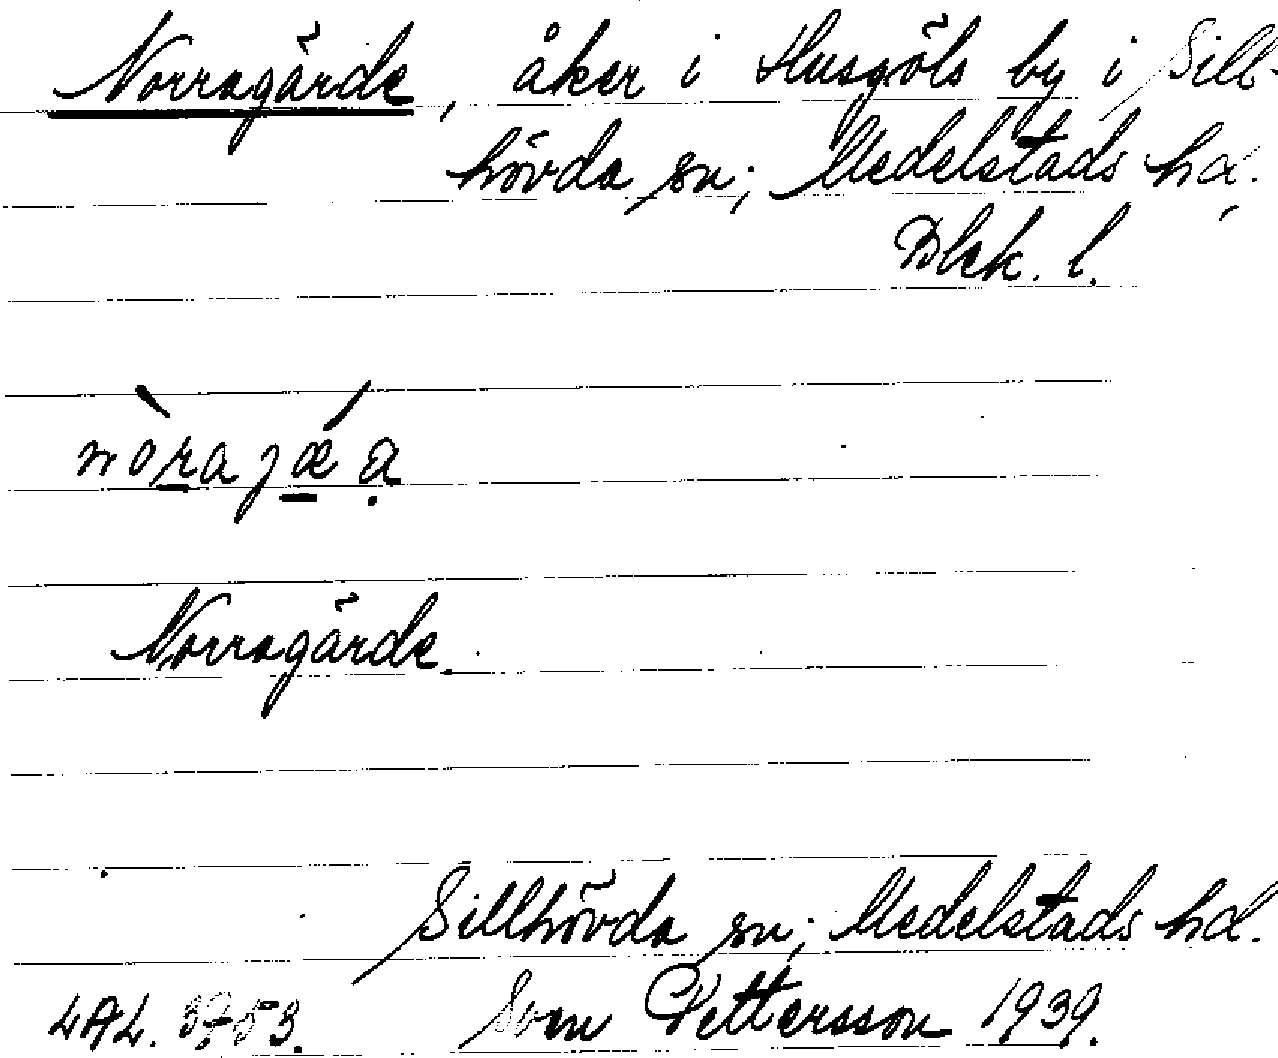 Norragärde, åker i Husgöls by i Sill-
hövda sn; Medelstads hd.
Blek. l.
nòrajǽa
Norragärde.
Sillhövda sn; Medelstads hd.
LAL. 3753. Sven Pettersson 1939.